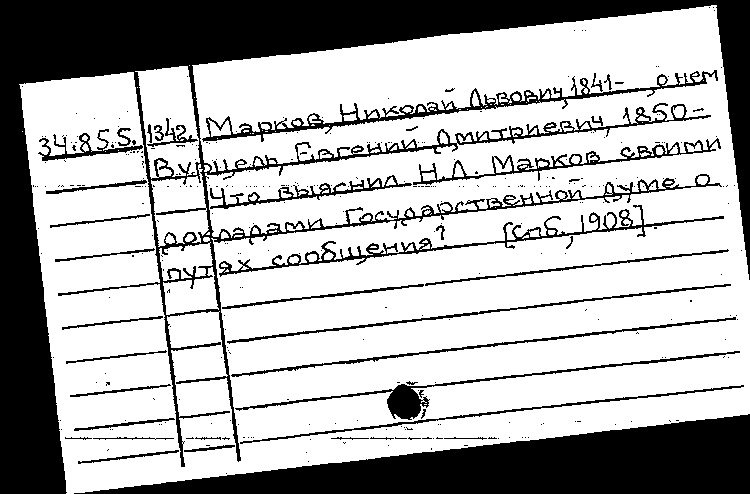 34.85.5. 1342. Марков, Николай Львович, 1841- , о нем
Вурцель, Евгений Дмитриевич, 1850-
Что выяснил Н.Л. Марков своими
докладами Государственной думе о
путях сообщения? [спб., 1908].